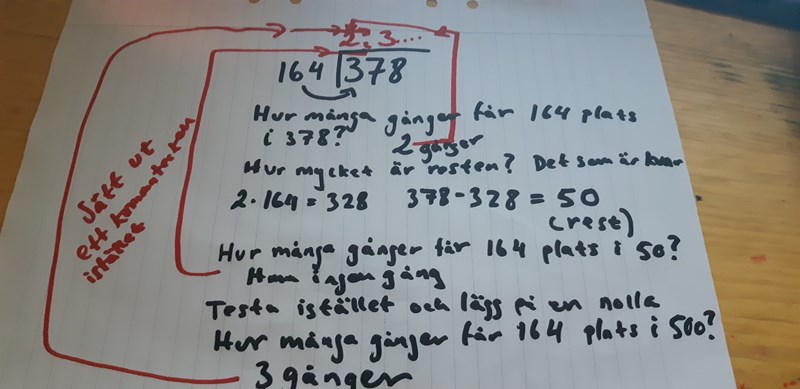 2,3....
164 378
Hur många gånger får 164 plats
i 378?
2 gånger
Hur mycket är resten? Det som är kvar
2·164=328 378-328=50
(rest)
Hur många gånger får 164 plats i 50?
Hmm ingen gång
Testa istället och lägg på en nolla
Hur många gånger får 164 plats i 500?
3 gånger
Sätt ut
ett kommatecken
istället